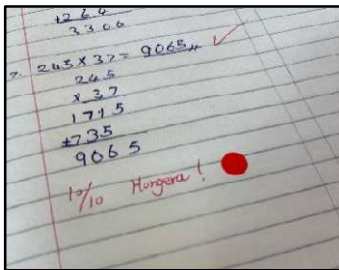 +264
3306
7. 245 x 37 = 9065
245
x 37
1715
+735
9065
10/10 Hongera!